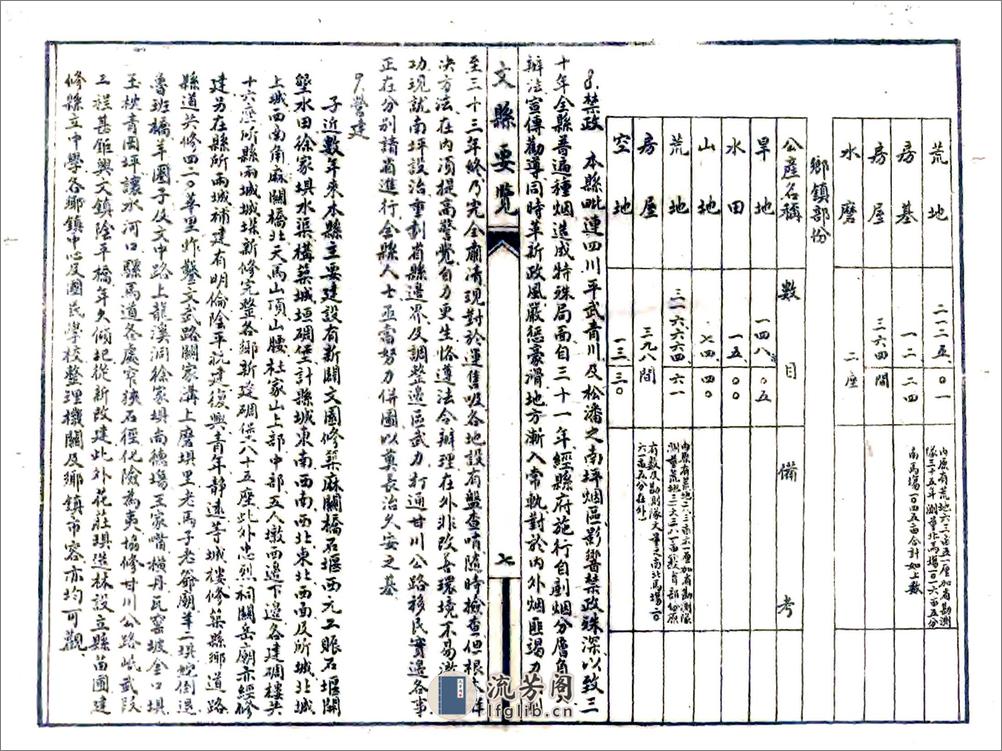 荒地 二一二五〇一 內原有荒地六三畝五一厘加省勘測
隊三十五年測草北馬場一〇一六畝五分
南馬場一〇四五畝合計如上數
房基 一二二四
房屋 三六四間
水磨 二座
鄉鎮部份
公產名稱 數目 備考
旱地 一四八〇五
水田 一五〇〇
山地 七四四〇
荒地 三一六六四六一
房屋 三九八間
空地 一三三〇
8.禁政 本縣毗連四川平武青川及松潘之南坪烟區影響禁政殊深以致三
十年全縣普遍種烟造成特殊局面自三十一年經縣府施行自剷烟分層負
辦法宣傳勸導同時革新政風嚴懲豪滑地方漸入常軌對於內外烟匪竭力
至三十三年終乃完全廟清現對於運售吸各地設有盤查哨隨時檢查但根本
決方法在內須提高警覺自力更生恪遵法令辦理在外非改善環境不易
功現就南坪設治重劃省縣邊界及調整邊區武力打通甘川公路移民實邊各事
正在分別請省進行全縣人士亟當努力併圖以奠長治久安之基
文縣要覽
七
9.營建
子近數年來本縣主要建設有新關文園修築麻關橋石堰西元工賑石堰開
墾水田徐家壩水渠構築城垣碉堡計縣城東南西南西北東北西南及所城北城
上城西南角麻關橋北天馬山頂山腰杜家山上部中部五人墩西邊下邊各建碉樓共
十六座所縣兩城城垜新修完整各鄉新建碉堡八十五座此外忠烈祠關岳廟亦經修
建另在縣所兩城補建有明倫陰平記建復興青年靜遠等城樓修築縣鄉道路
縣道共修四二〇華里炸鑿文武路關家溝上磨壩里老馬子老爺廟羊二壩蛇倒退
魯班橋羊圈子及文中路上龍溪洞徐家壩尚德塲王家嘴橫丹瓦窯坡金口壩
玉枕青岡坪讓水河口縣馬道各處窄狹石徑化險為夷協修甘川公路岷武段
工程甚鉅興文鎮陰平橋年久傾圮從新改建此外花莊壩造林設立縣苗圃建
修縣立中學各鄉鎮中心及國民學校整理機關及鄉鎮市容亦均可觀
流芳阁
lfglib.cn